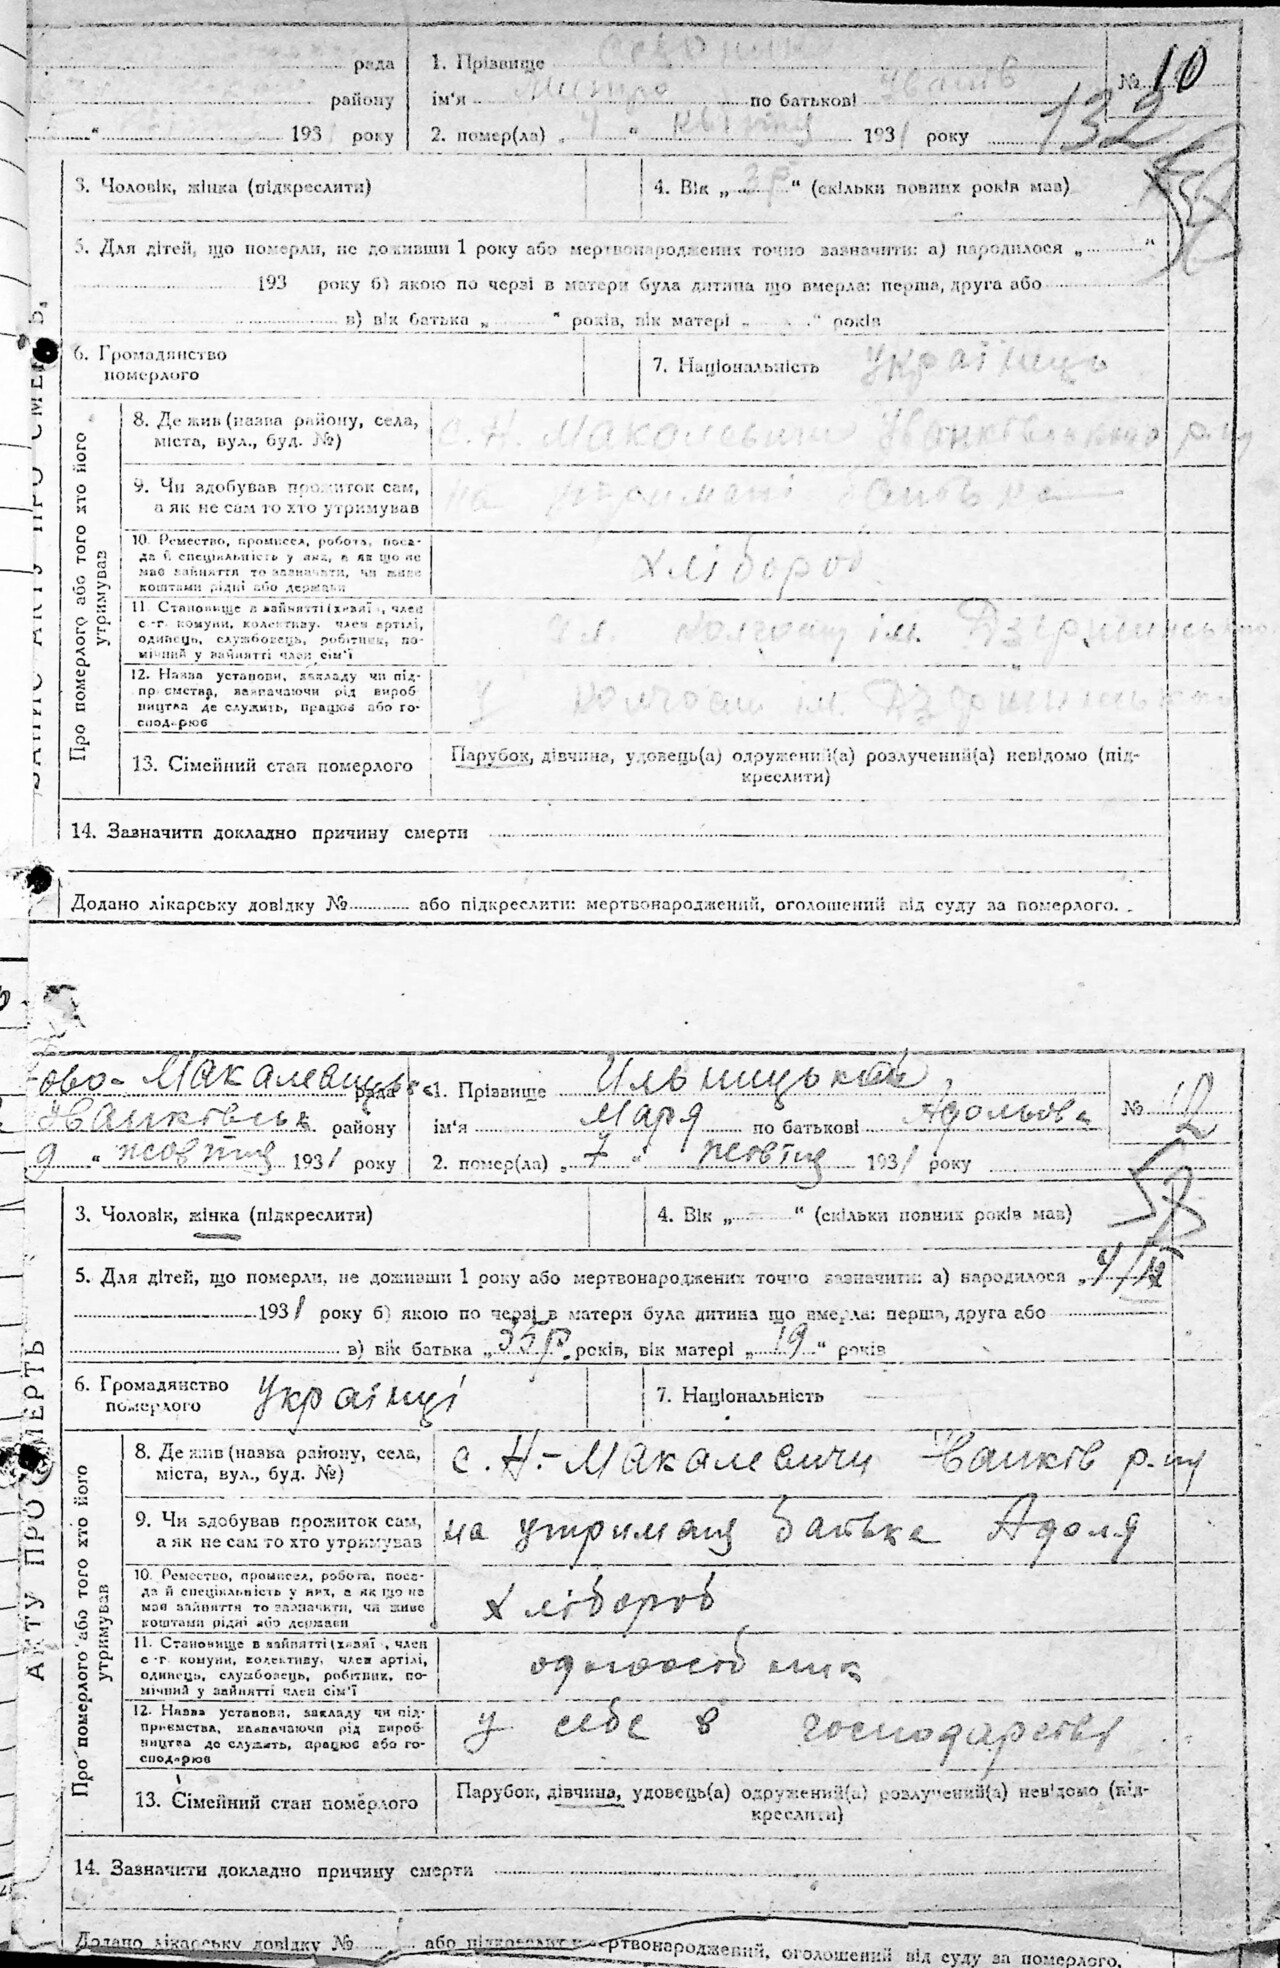 рада 1. Прізвище
району ім'я Митро по батькові Іванів № 10
193 1 року 2. помер(ла) „ 4 “ квітня 193 1 року 132
3. Чоловік, жінка (підкреслити) 4. Вік „ 2 р “ (скільки повних років мав)
5. Для дітей, що померли, не доживши 1 року або мертвонароджених точно зазначити: а) народилося „ “
193 року б) якою по черзі в матери була дитина що вмерла: перша, друга або
в) вік батька „ “ років, вік матері „ “ років
6. Громадянство 7. Національність Українець
померлого
ЗАПИС АКТУ ПРО СМЕРТЬ.
Про померлого або того хто його утримував
8. Де жив (назва району, села, с. Н. Макалевичи Іванківського р-ну
міста, вул., буд. №)
9. Чи здобував прожиток сам, на утримані батька
а як не сам то хто утримував
10. Ремество, промисел, робота, поса- хлібороб
да й спеціяльність у них, а як що не
мав зайняття то зазначити, чи живе
коштами рідні або держави
11. Становище в зайнятті (хазяї , член чл. колгоспу ім. Дзержинського
с.-г. комуни, колективу, член артілі,
одинець, службовець, робітник, по-
мічний у зайнятті член сім'ї
12. Назва установи, закладу чи під- у колгоспі ім. Дзержинського
приємства, зазначаючи рід вироб-
ництва де служить, працює або го-
сподарює
13. Сімейний стан померлого Парубок, дівчина, удовець(а) одружений(а) розлучений(а) невідомо (під-
креслити)
14. Зазначити докладно причину смерти
Додано лікарську довідку № або підкреслити: мертвонароджений, оголошений від суду за померлого.
ово-Макалевицьк рада 1. Прізвище Ильницький
Іванківськ району ім'я Маря по батькові Адольова № 12
9 “ жовтня 193 1 року 2. помер(ла) „ 7 “ жовтня 193 1 року
3. Чоловік, жінка (підкреслити) 4. Вік „ — “ (скільки повних років мав)
5. Для дітей, що померли, не доживши 1 року або мертвонароджених точно зазначити: а) народилося „ 4/
193 1 року б) якою по черзі в матери була дитина що вмерла: перша, друга або
в) вік батька „ 35 р. років, вік матері „ 19 “ років
6. Громадянство Українці 7. Національність
померлого
АКТУ ПРО СМЕРТЬ
Про померлого або того хто його утримував
8. Де жив (назва району, села, с. Н.-Макалевичи Іванків р-ну
міста, вул., буд. №)
9. Чи здобував прожиток сам, на утриманя батька Адоля
а як не сам то хто утримував
10. Ремество, промисел, робота, поса- хлібороб
да й спеціяльність у них, а як що не
мав зайняття то зазначити, чи живе
коштами рідні або держави
11. Становище в зайнятті (хазяї , член одноосібник
с-г. комуни, колективу, член артілі,
одинець, службовець, робітник, по-
мічний у зайнятті член сім'ї
12. Назва установи, закладу чи під- у себе в господарстві
приємства, зазначаючи рід вироб-
ництва де служить, працює або го-
сподарює
13. Сімейний стан померлого Парубок, дівчина, удовець(а) одружений(а) розлучений(а) невідомо (під-
креслити)
14. Зазначити докладно причину смерти
Додано лікарську довідку № або підкреслит мертвонароджений, оголошений від суду за померлого.